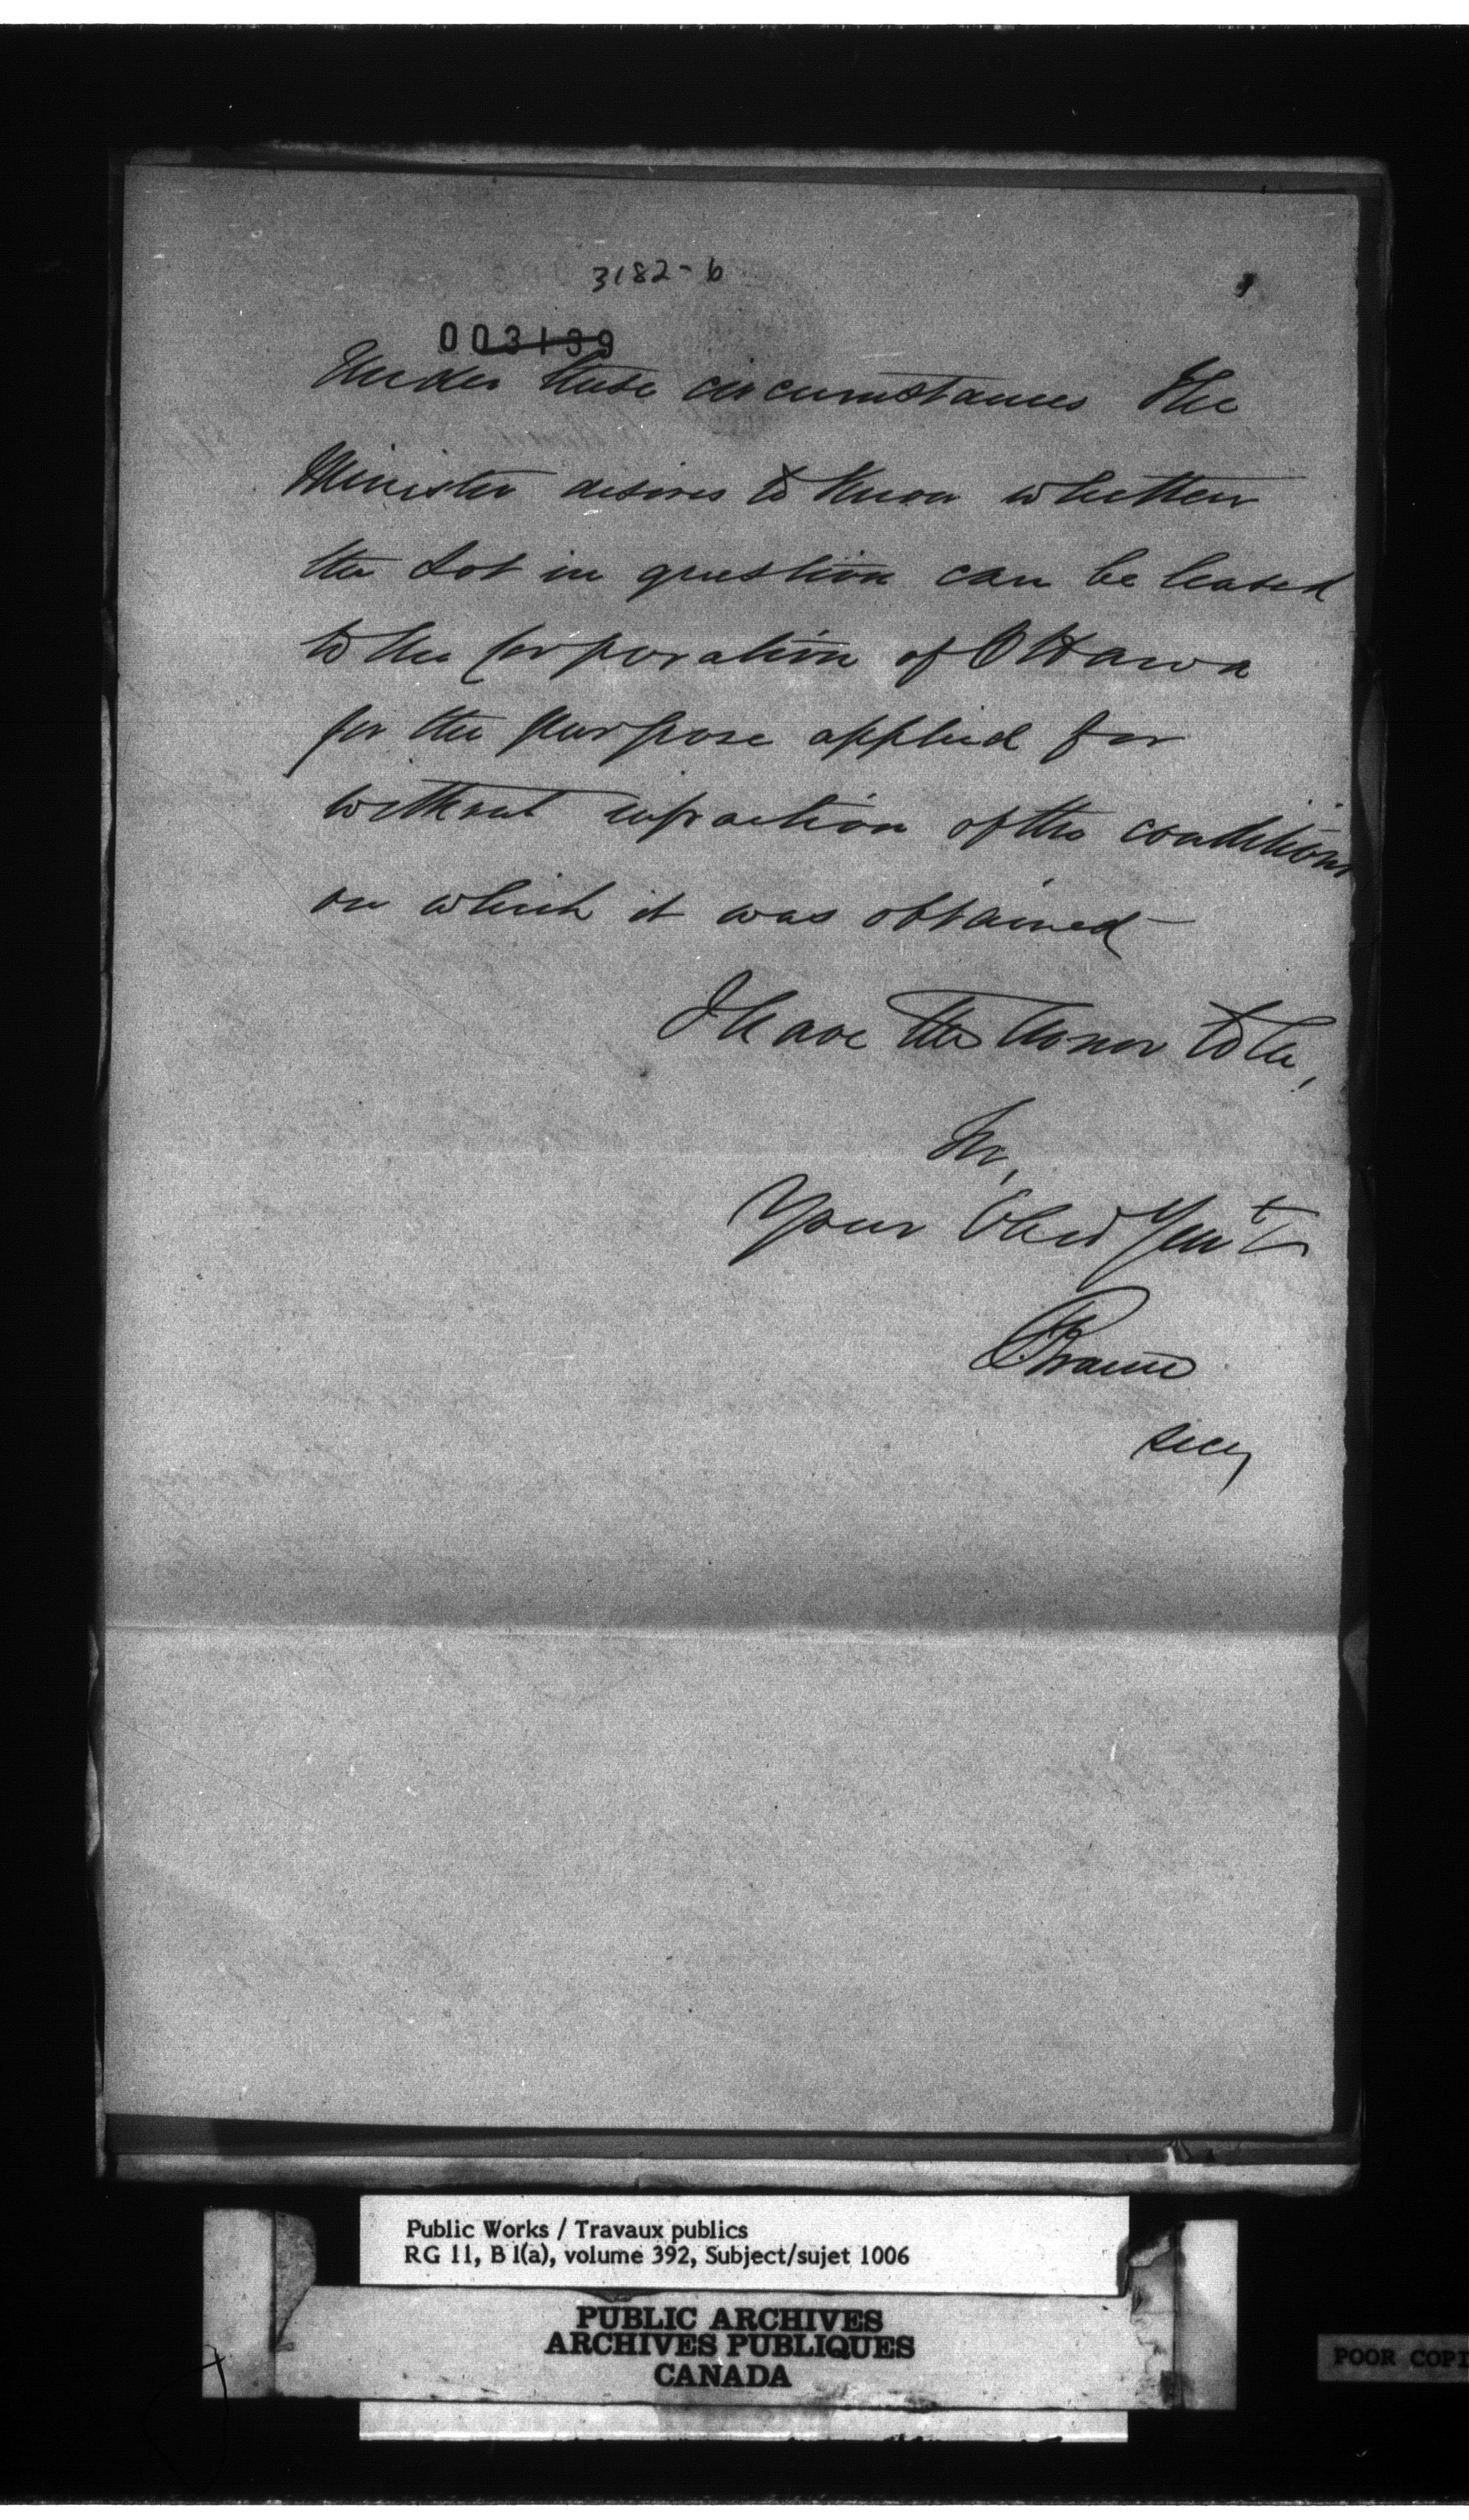 3182-6
003139
Under these circumstances the
Minister desires to Know whether
the Lot in question can be leased
to the Corporation of Ottawa
for the purpose applied for
without infraction of the conditions
on which it was obtained
I have the honor to be,
Sir,
Your Obed Servt
FBraun
Secy
Public Works / Travaux publics
RG 11, B 1(a), volume 392, Subject/sujet 1006
PUBLIC ARCHIVES
ARCHIVES PUBLIQUES
CANADA
POOR COPI